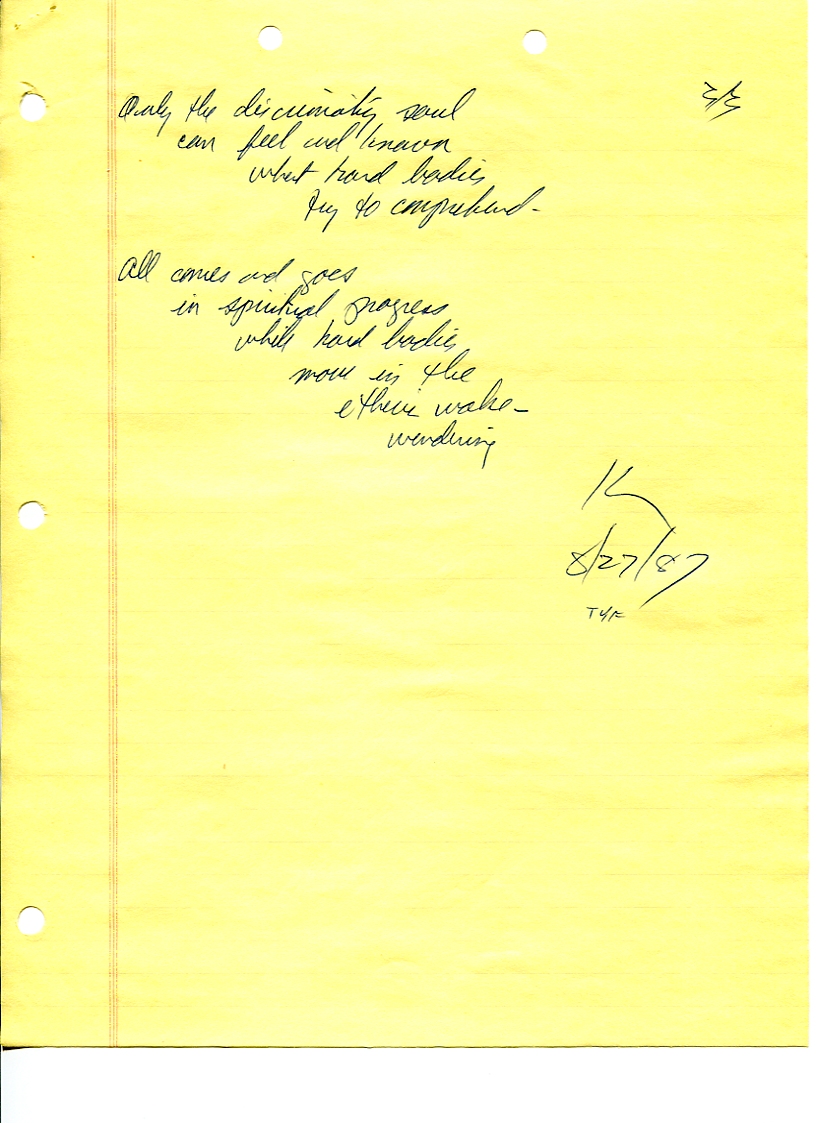 3/3
Only the discriminating soul
can feel and known
what hard bodies
try to comprehend-
All comes and goes
in spiritual progress
while hard bodies
move in the
etheric wake-
wondering
K
8/27/87